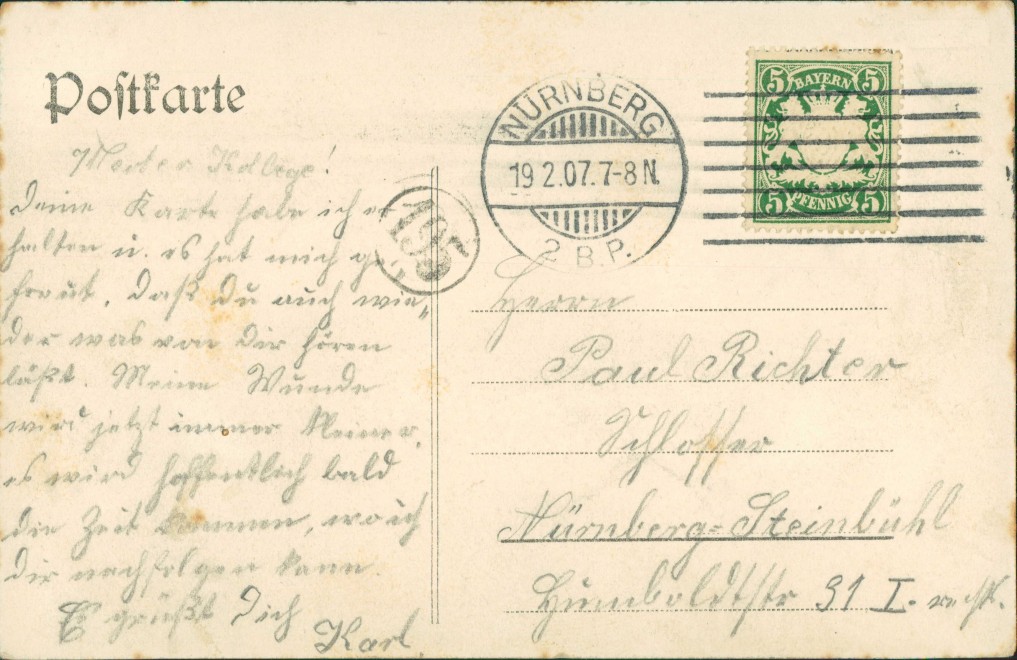 Postkarte
NÜRNBERG
19 2.07. 7-8 N.
2 B.P.
5 BAYERN 5
5 PFENNIG 5
195
Werter Kollege!
Deine Karte habe ich er
halten u. es hat mich ge„
freut, daß du auch wie„
der was von Dir hören
läßt. Meine Wunde
wird jetzt immer kleiner,
es wird hoffentlich bald
die Zeit kommen, wo ich
dir nachfolgen kann.
Es grüßt Dich
Karl
Herrn
Paul Richter
Schlosser
Nürnberg=Steinbühl
Humboldtstr 31 I. rechts.